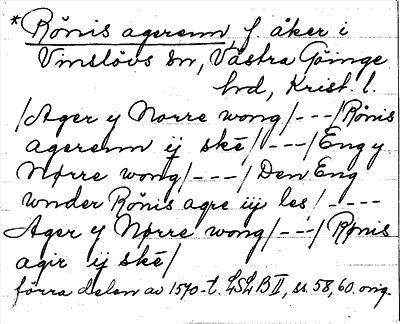 *Rönis agerenn, f. åker i
Vinslövs sn, Västra Göinge
hd, Krist. l.
/Ager y Norre wong/---/Rönis
agerenn ij ske/---/Eng y
Nørre wong/---/Den Eng
wnder Rönis agre iij les/----
Ager y Nørre wong/---/Rönis
agir ij ske/
förra delen av 1570-t. LSLB II, ss. 58, 60. orig.